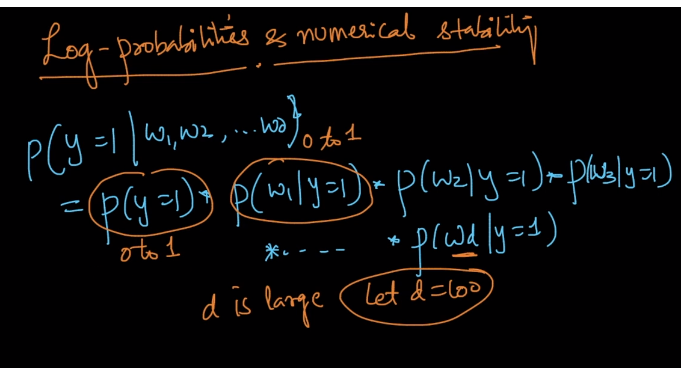 Log-probabilities & numerical stability
P(y=1 | w1, w2, ... wd) 0 to 1
= P(y=1) * P(w1|y=1) * P(w2|y=1) * P(w3|y=1)
0 to 1 *. - - - * P(wd|y=1)
d is large Let d=100